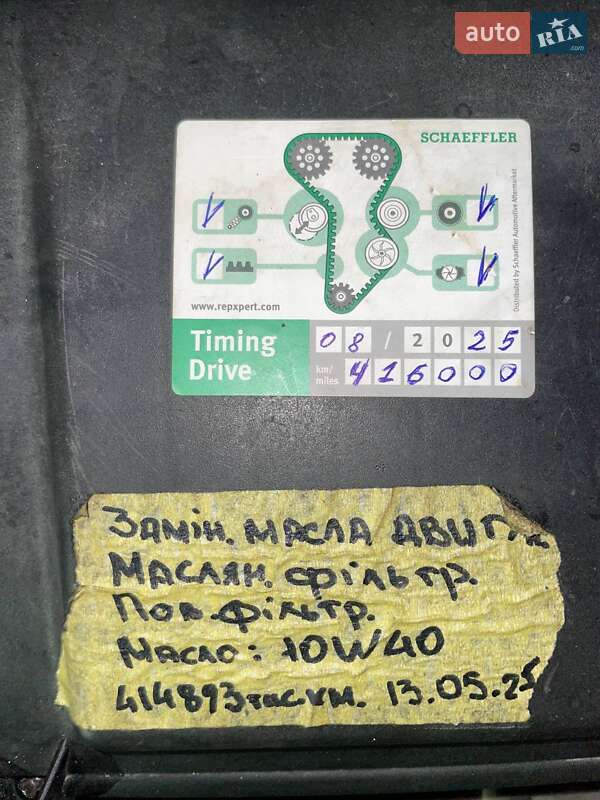 auto RIA .com
SCHAEFFLER
V V
V V
Distributed by Schaeffler Automotive Aftermarket
www.repxpert.com
Timing Drive
08/2025
km/miles 416000
Замін. масла двиг
Маслян. фільтр.
Пов. фільтр.
Масло: 10W40
414893 тис км. 13.05.25